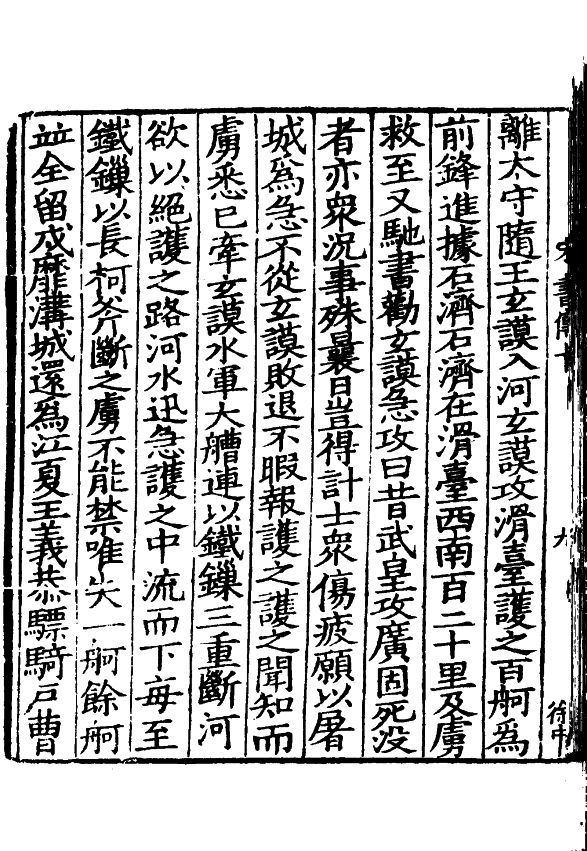 離太守隨王玄謨入河玄謨攻滑臺護之百舸爲
前鋒進據石濟石濟在滑臺西南百二十里及虜
救至又馳書勸玄謨急攻曰昔武皇攻廣固死没
者亦衆況事殊曩日豈得計士衆傷疲願以屠
城爲急不從玄謨敗退不暇報護之護之聞知而
虜悉已牽玄謨水軍大艚連以鐵鏁三重斷河
欲以絕護之路河水迅急護之中流而下每至
鐵鏁以長柯斧斷之虜不能禁唯失一舸餘舸
並全留戍靡溝城還爲江夏王義恭驃騎戶曹